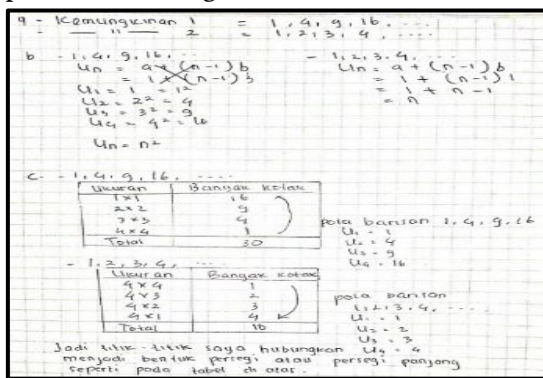 a - Kemungkinan 1 = 1, 4, 9, 16, ....
— " — 2 = 1, 2, 3, 4, ....
b - 1, 4, 9, 16, ...
Un = a + (n-1) b
= 1 + (n-1) 3
U1 = 1 = 1²
U2 = 2² = 4
U3 = 3² = 9
U4 = 4² = 16
Un = n²
- 1, 2, 3, 4, ....
Un = a + (n-1) b
= 1 + (n-1) 1
= 1 + n - 1
= n
c - 1, 4, 9, 16, ....
Ukuran Banyak kotak
1 x 1 16
2 x 2 9
3 x 3 4
4 x 4 1
Total 30
pola barisan 1, 4, 9, 16
U1 = 1
U2 = 4
U3 = 9
U4 = 16
- 1, 2, 3, 4, ....
Ukuran Banyak kotak
4 x 4 1
4 x 3 2
4 x 2 3
4 x 1 4
Total 10
pola barisan
1, 2, 3, 4, ....
U1 = 1
U2 = 2
U3 = 3
U4 = 4
Jadi titik-titik saya hubungkan
menjadi bentuk persegi atau persegi panjang
seperti pada tabel di atas.